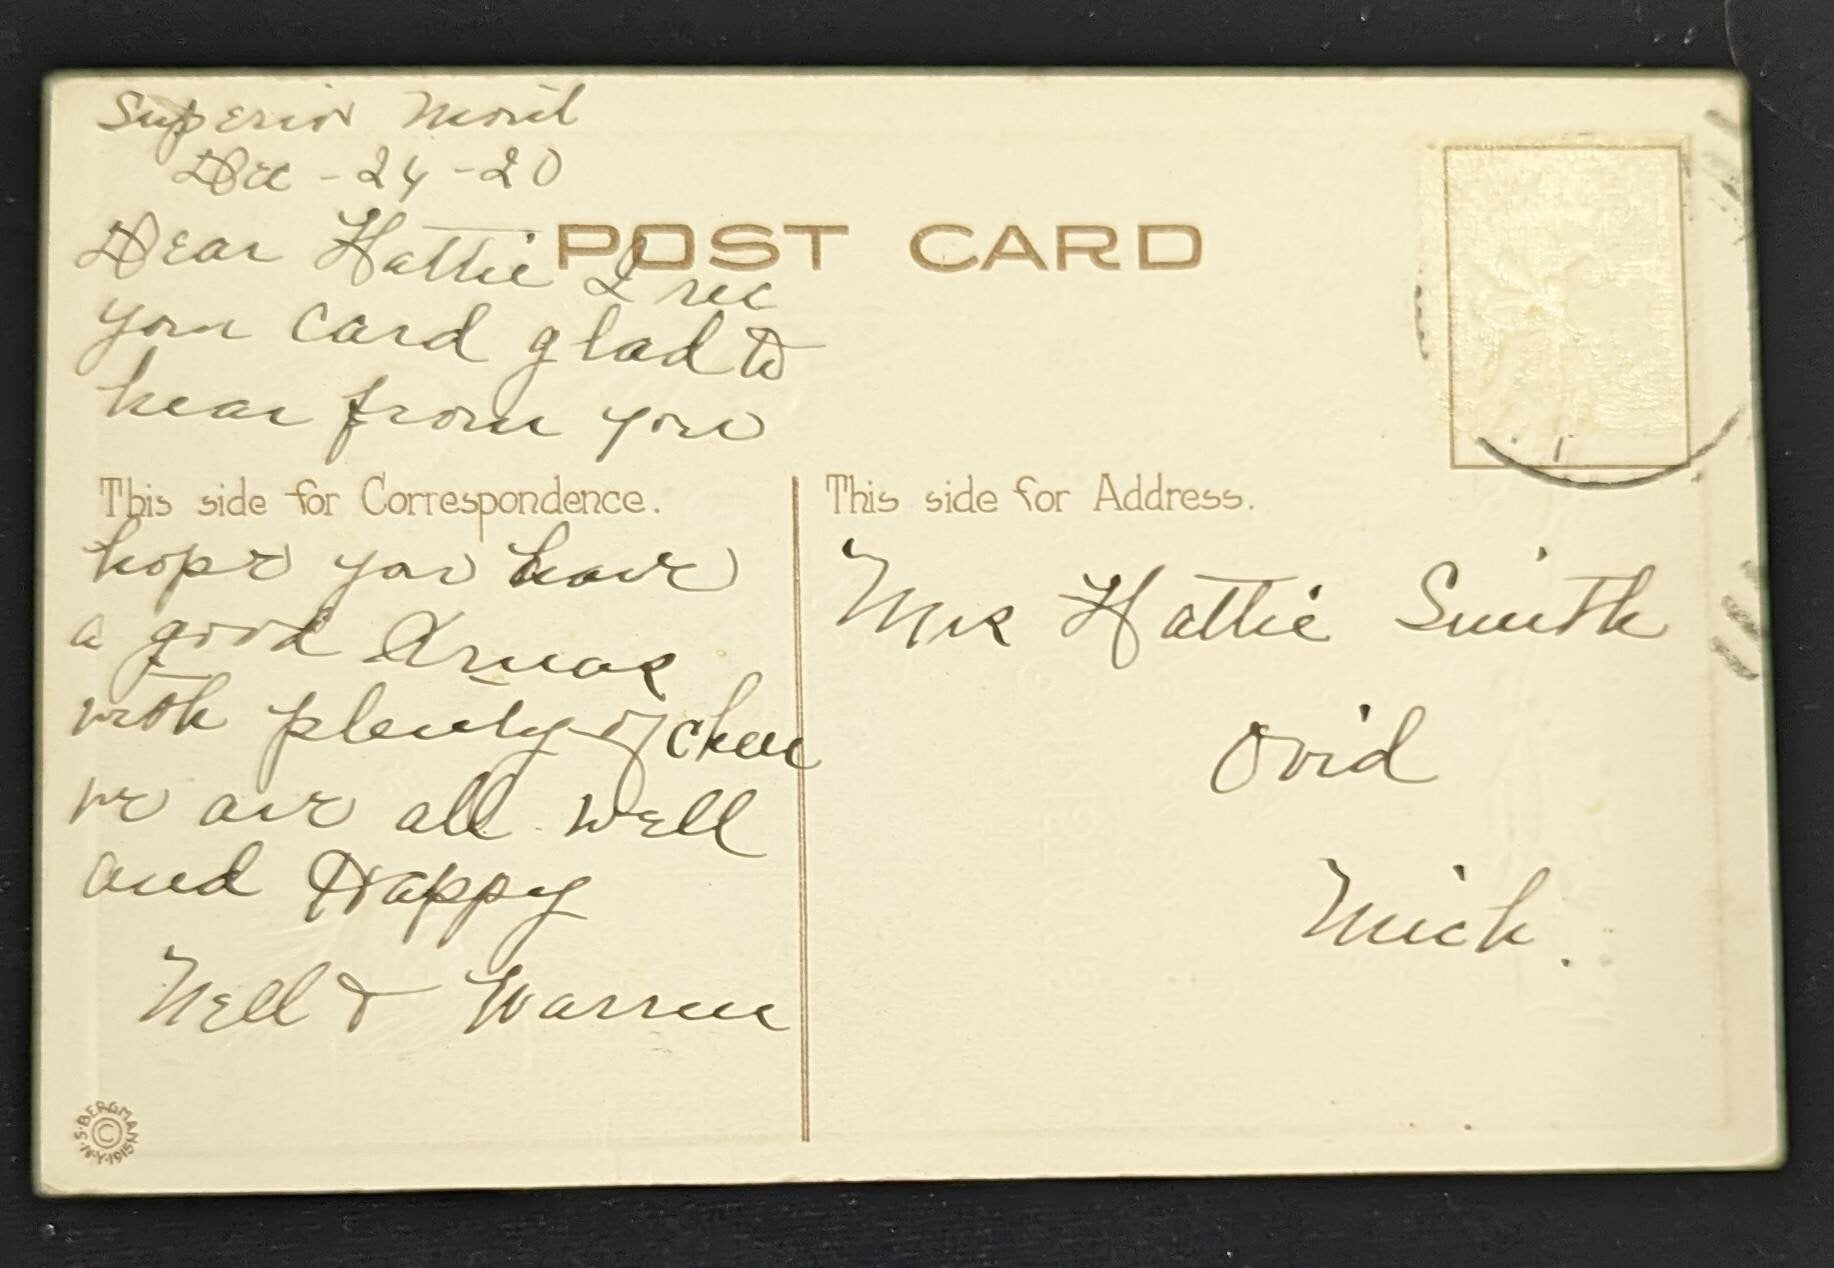 Superior Mont
Dec - 24 - 20
POST CARD
Dear Hattie I rec
your card glad to
hear from you
This side for Correspondence.
hope you have
a good Xmas
with plenty of cheer
we are all well
and Happy
Nell & Warren
This side for Address.
Mrs Hattie Smith
Ovid
Mich.
S. BERGMAN N.Y. 1915 ©